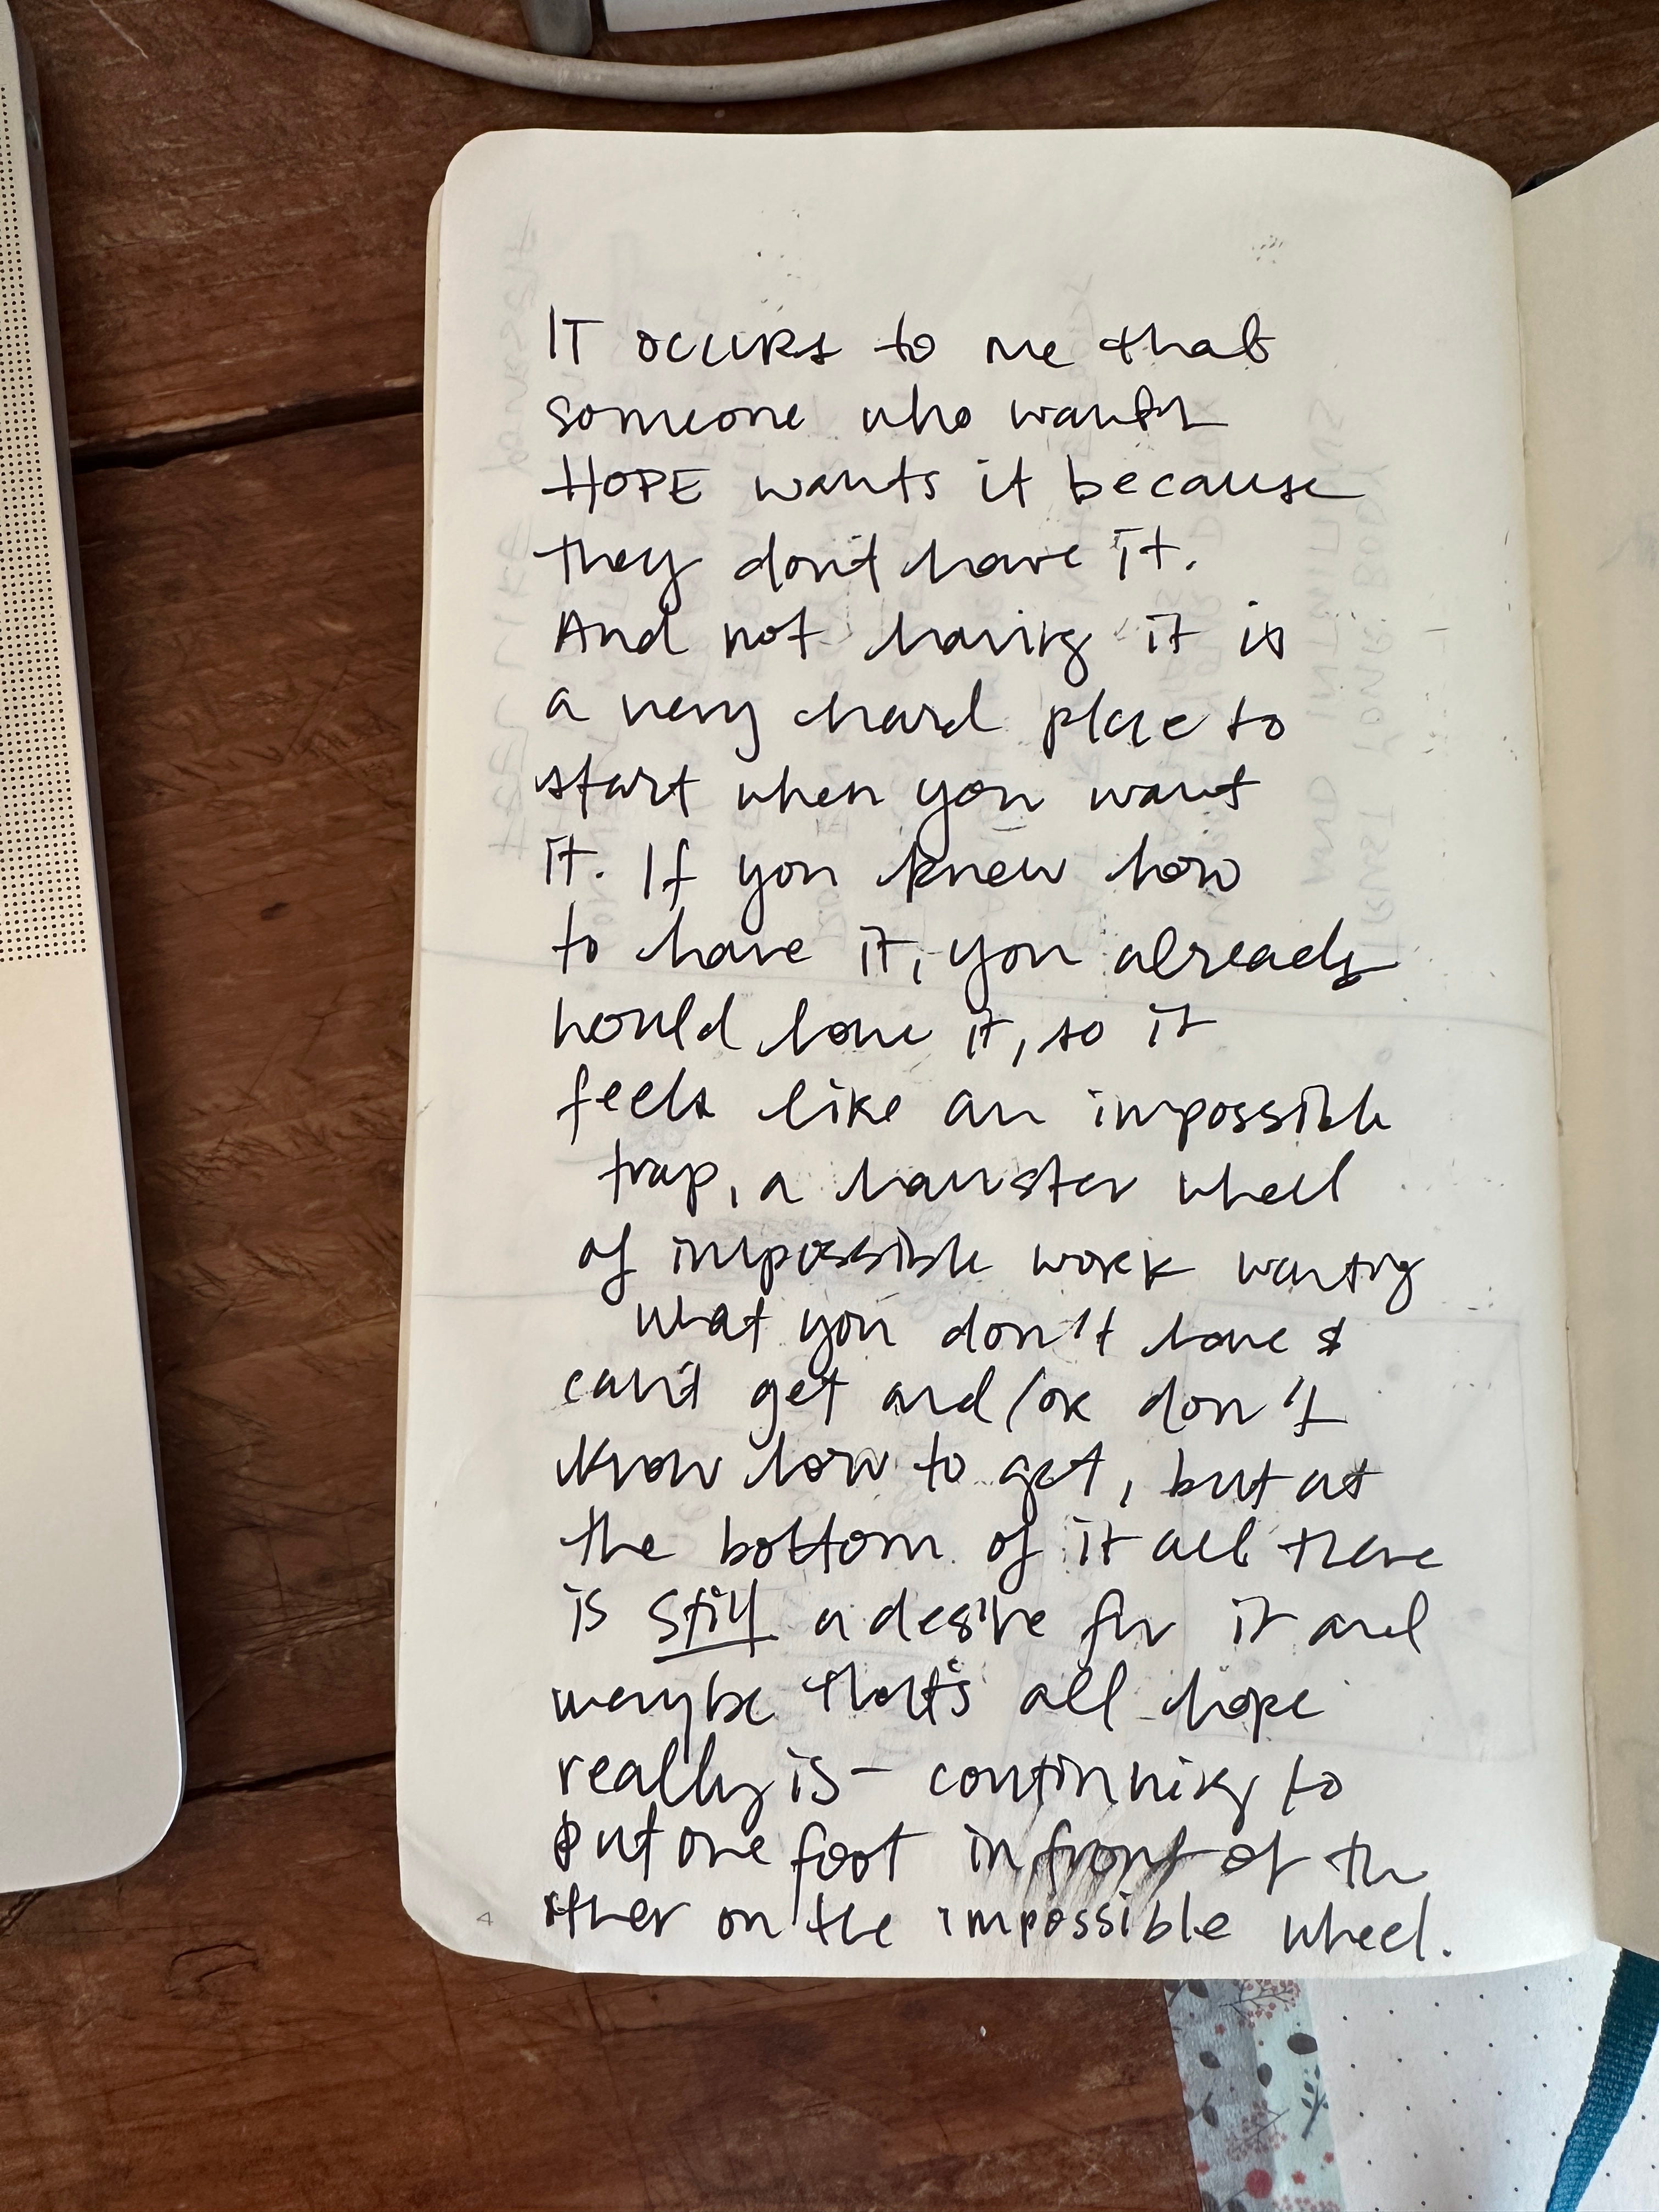 IT occurs to me that
someone who wants
HOPE wants it because
they don't have it.
And not having it is
a very hard place to
start when you want
it. If you knew how
to have it, you already
would have it, so it
feels like an impossible
trap, a hamster wheel
of impossible work wanting
what you don't have &
can't get and/or don't
know how to get, but at
the bottom of it all there
is still a desire for it and
maybe that's all hope
really is - continuing to
put one foot in front of the
other on the impossible wheel.
4